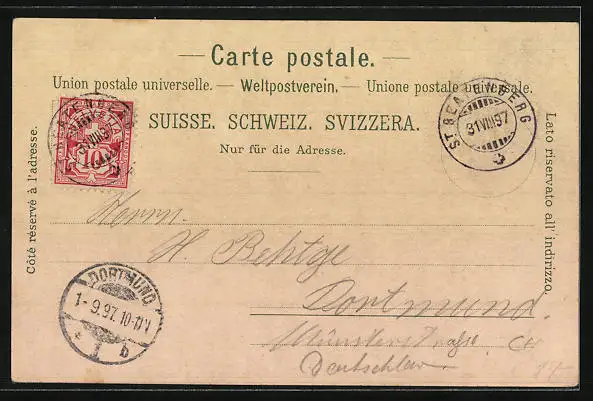 — Carte postale. —
Union postale universelle. — Weltpostverein. — Unione postale universale.
SUISSE. SCHWEIZ. SVIZZERA.
Nur für die Adresse.
Côté réservé à l'adresse.
Lato riservato all' indirizzo.
HELVETIA
10
ST BEATENBERG
31 VIII 97
Herrn
H. Behtge
Dortmund.
Münsterstraße
Deutschland
DORTMUND
1-9.97.10-11V
1 b